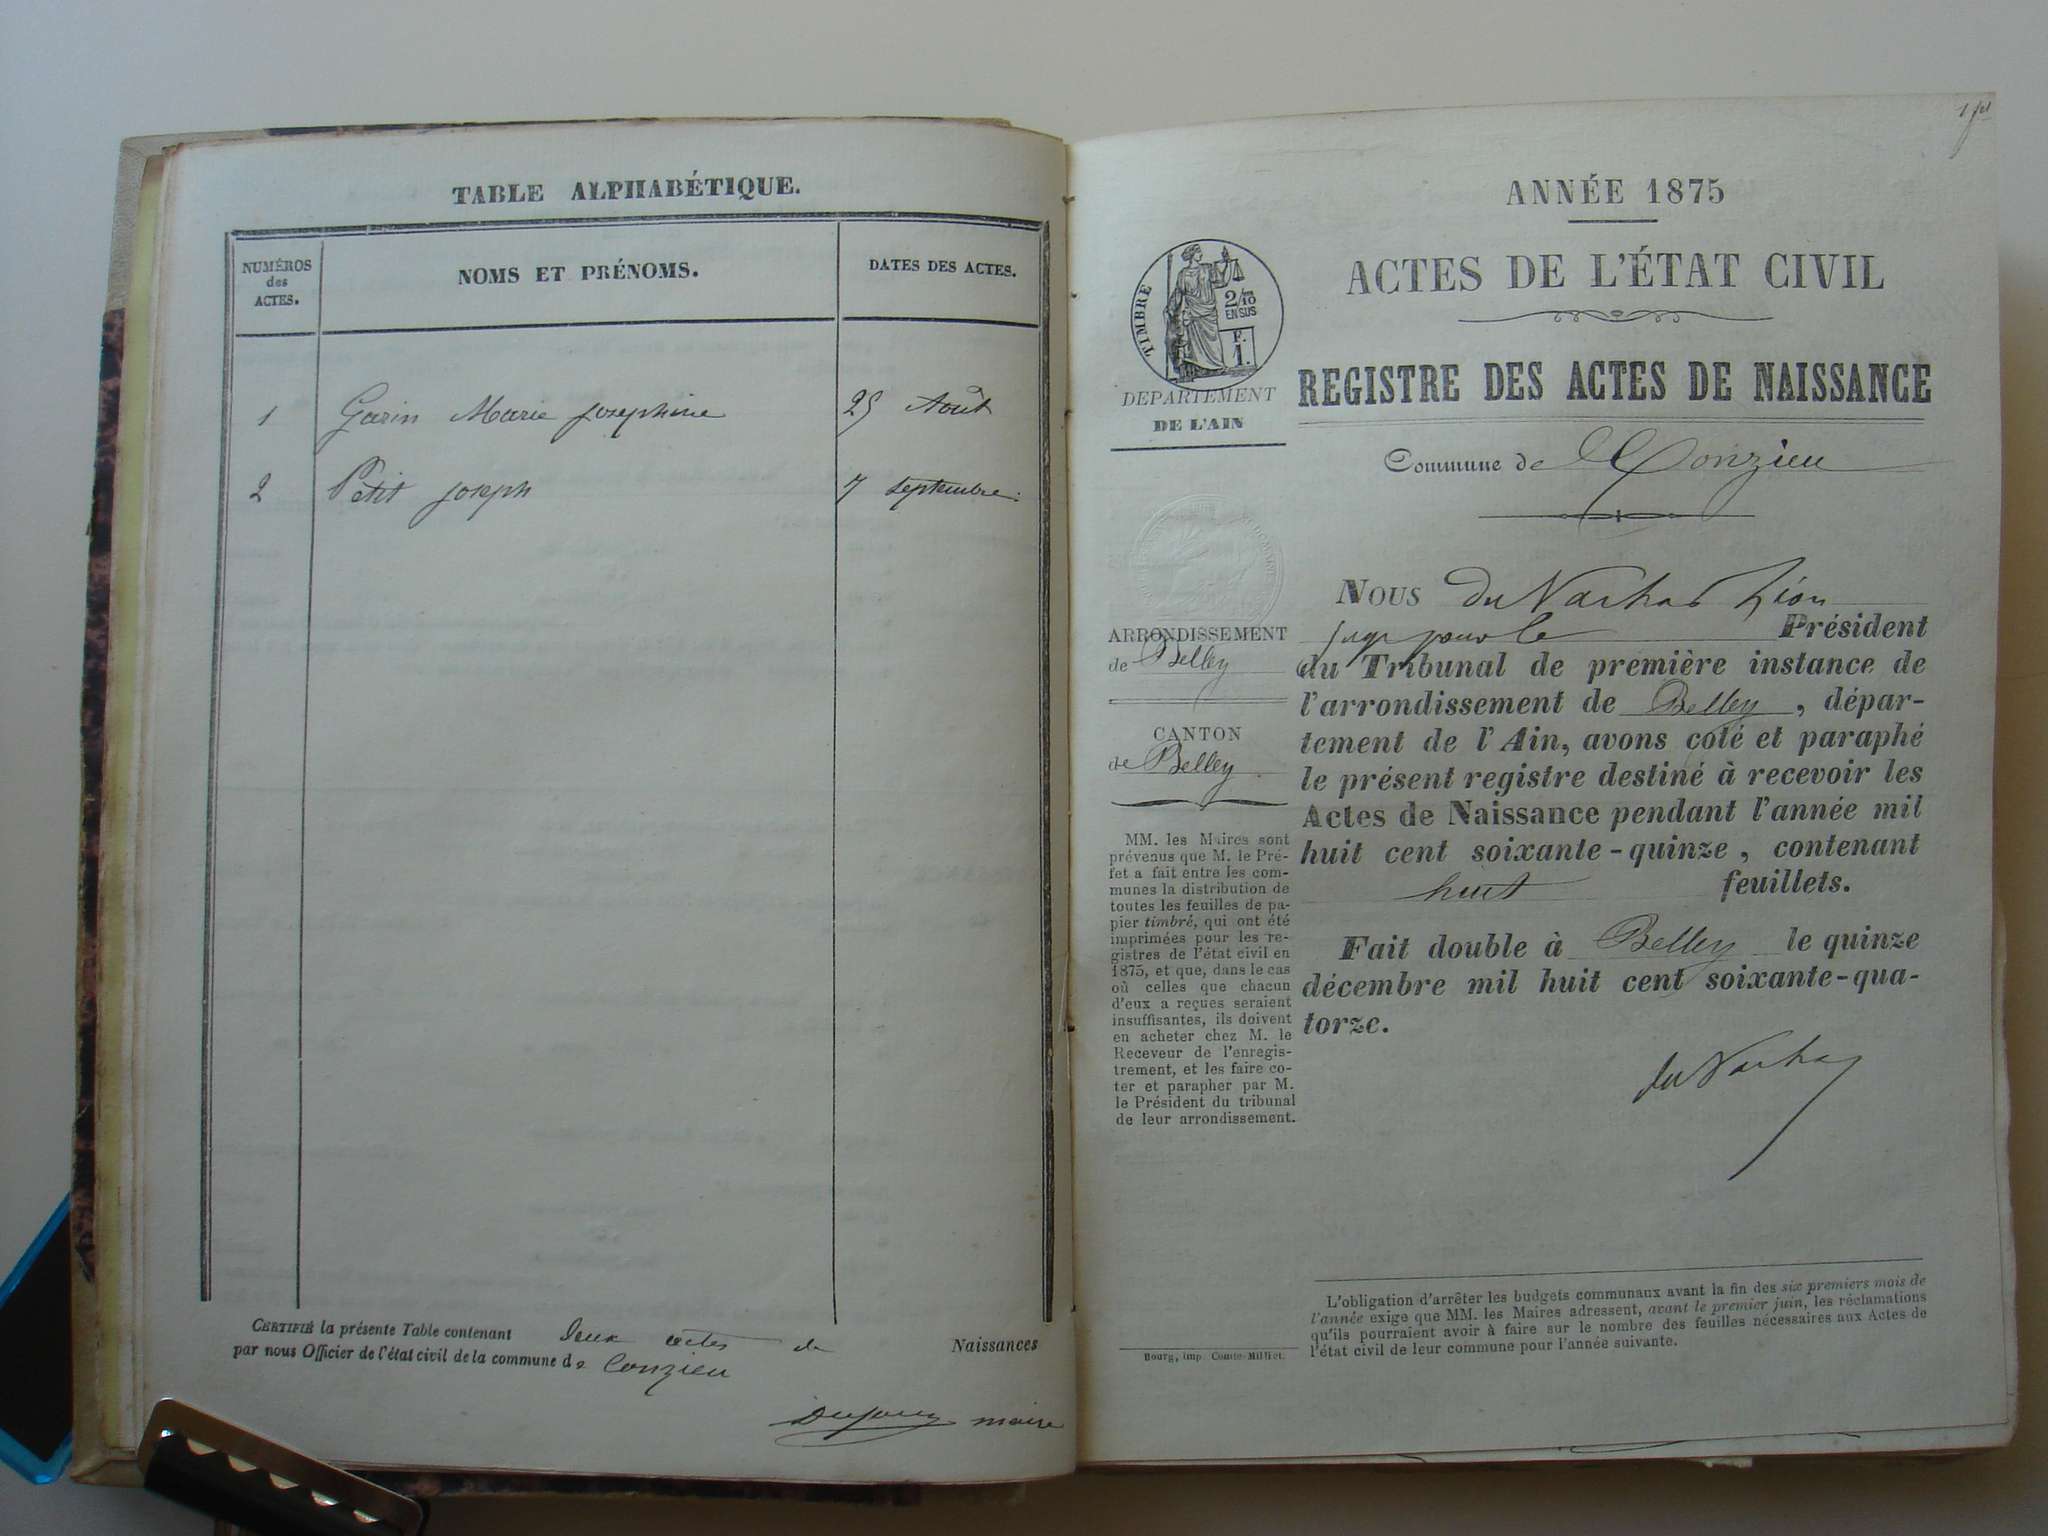 TABLE ALPHABÉTIQUE.
NUMÉROS
des
ACTES.
NOMS ET PRÉNOMS.
DATES DES ACTES.
1 Garin Marie Josephine 25 Août
2 Petit Joseph 7 septembre
CERTIFIÉ la présente Table contenant deux actes de Naissances
par nous Officier de l'état civil de la commune de Conzieu
maire
ANNÉE 1875
ACTES DE L'ÉTAT CIVIL
REGISTRE DES ACTES DE NAISSANCE
Commune de Conzieu
TIMBRE
2/10
EN SUS
F.
1.
DEPARTEMENT
DE L'AIN
ARRONDISSEMENT
de Belley
CANTON
de Belley
MM. les Maires sont
prévenus que M. le Pré-
fet a fait entre les com-
munes la distribution de
toutes les feuilles de pa-
pier timbré, qui ont été
imprimées pour les re-
gistres de l'état civil en
1875, et que, dans le cas
où celles que chacun
d'eux a reçues seraient
insuffisantes, ils doivent
en acheter chez M. le
Receveur de l'enregis-
trement, et les faire co-
ter et parapher par M.
le Président du tribunal
de leur arrondissement.
NOUS
juge pour le Président
du Tribunal de première instance de
l'arrondissement de Belley, dépar-
tement de l'Ain, avons coté et paraphé
le présent registre destiné à recevoir les
Actes de Naissance pendant l'année mil
huit cent soixante-quinze, contenant
huit feuillets.
Fait double à Belley le quinze
décembre mil huit cent soixante-qua-
torze.
L'obligation d'arrêter les budgets communaux avant la fin des six premiers mois de
l'année exige que MM. les Maires adressent, avant le premier juin, les réclamations
qu'ils pourraient avoir à faire sur le nombre des feuilles nécessaires aux Actes de
l'état civil de leur commune pour l'année suivante.
Bourg, imp. Comte-Milliet.